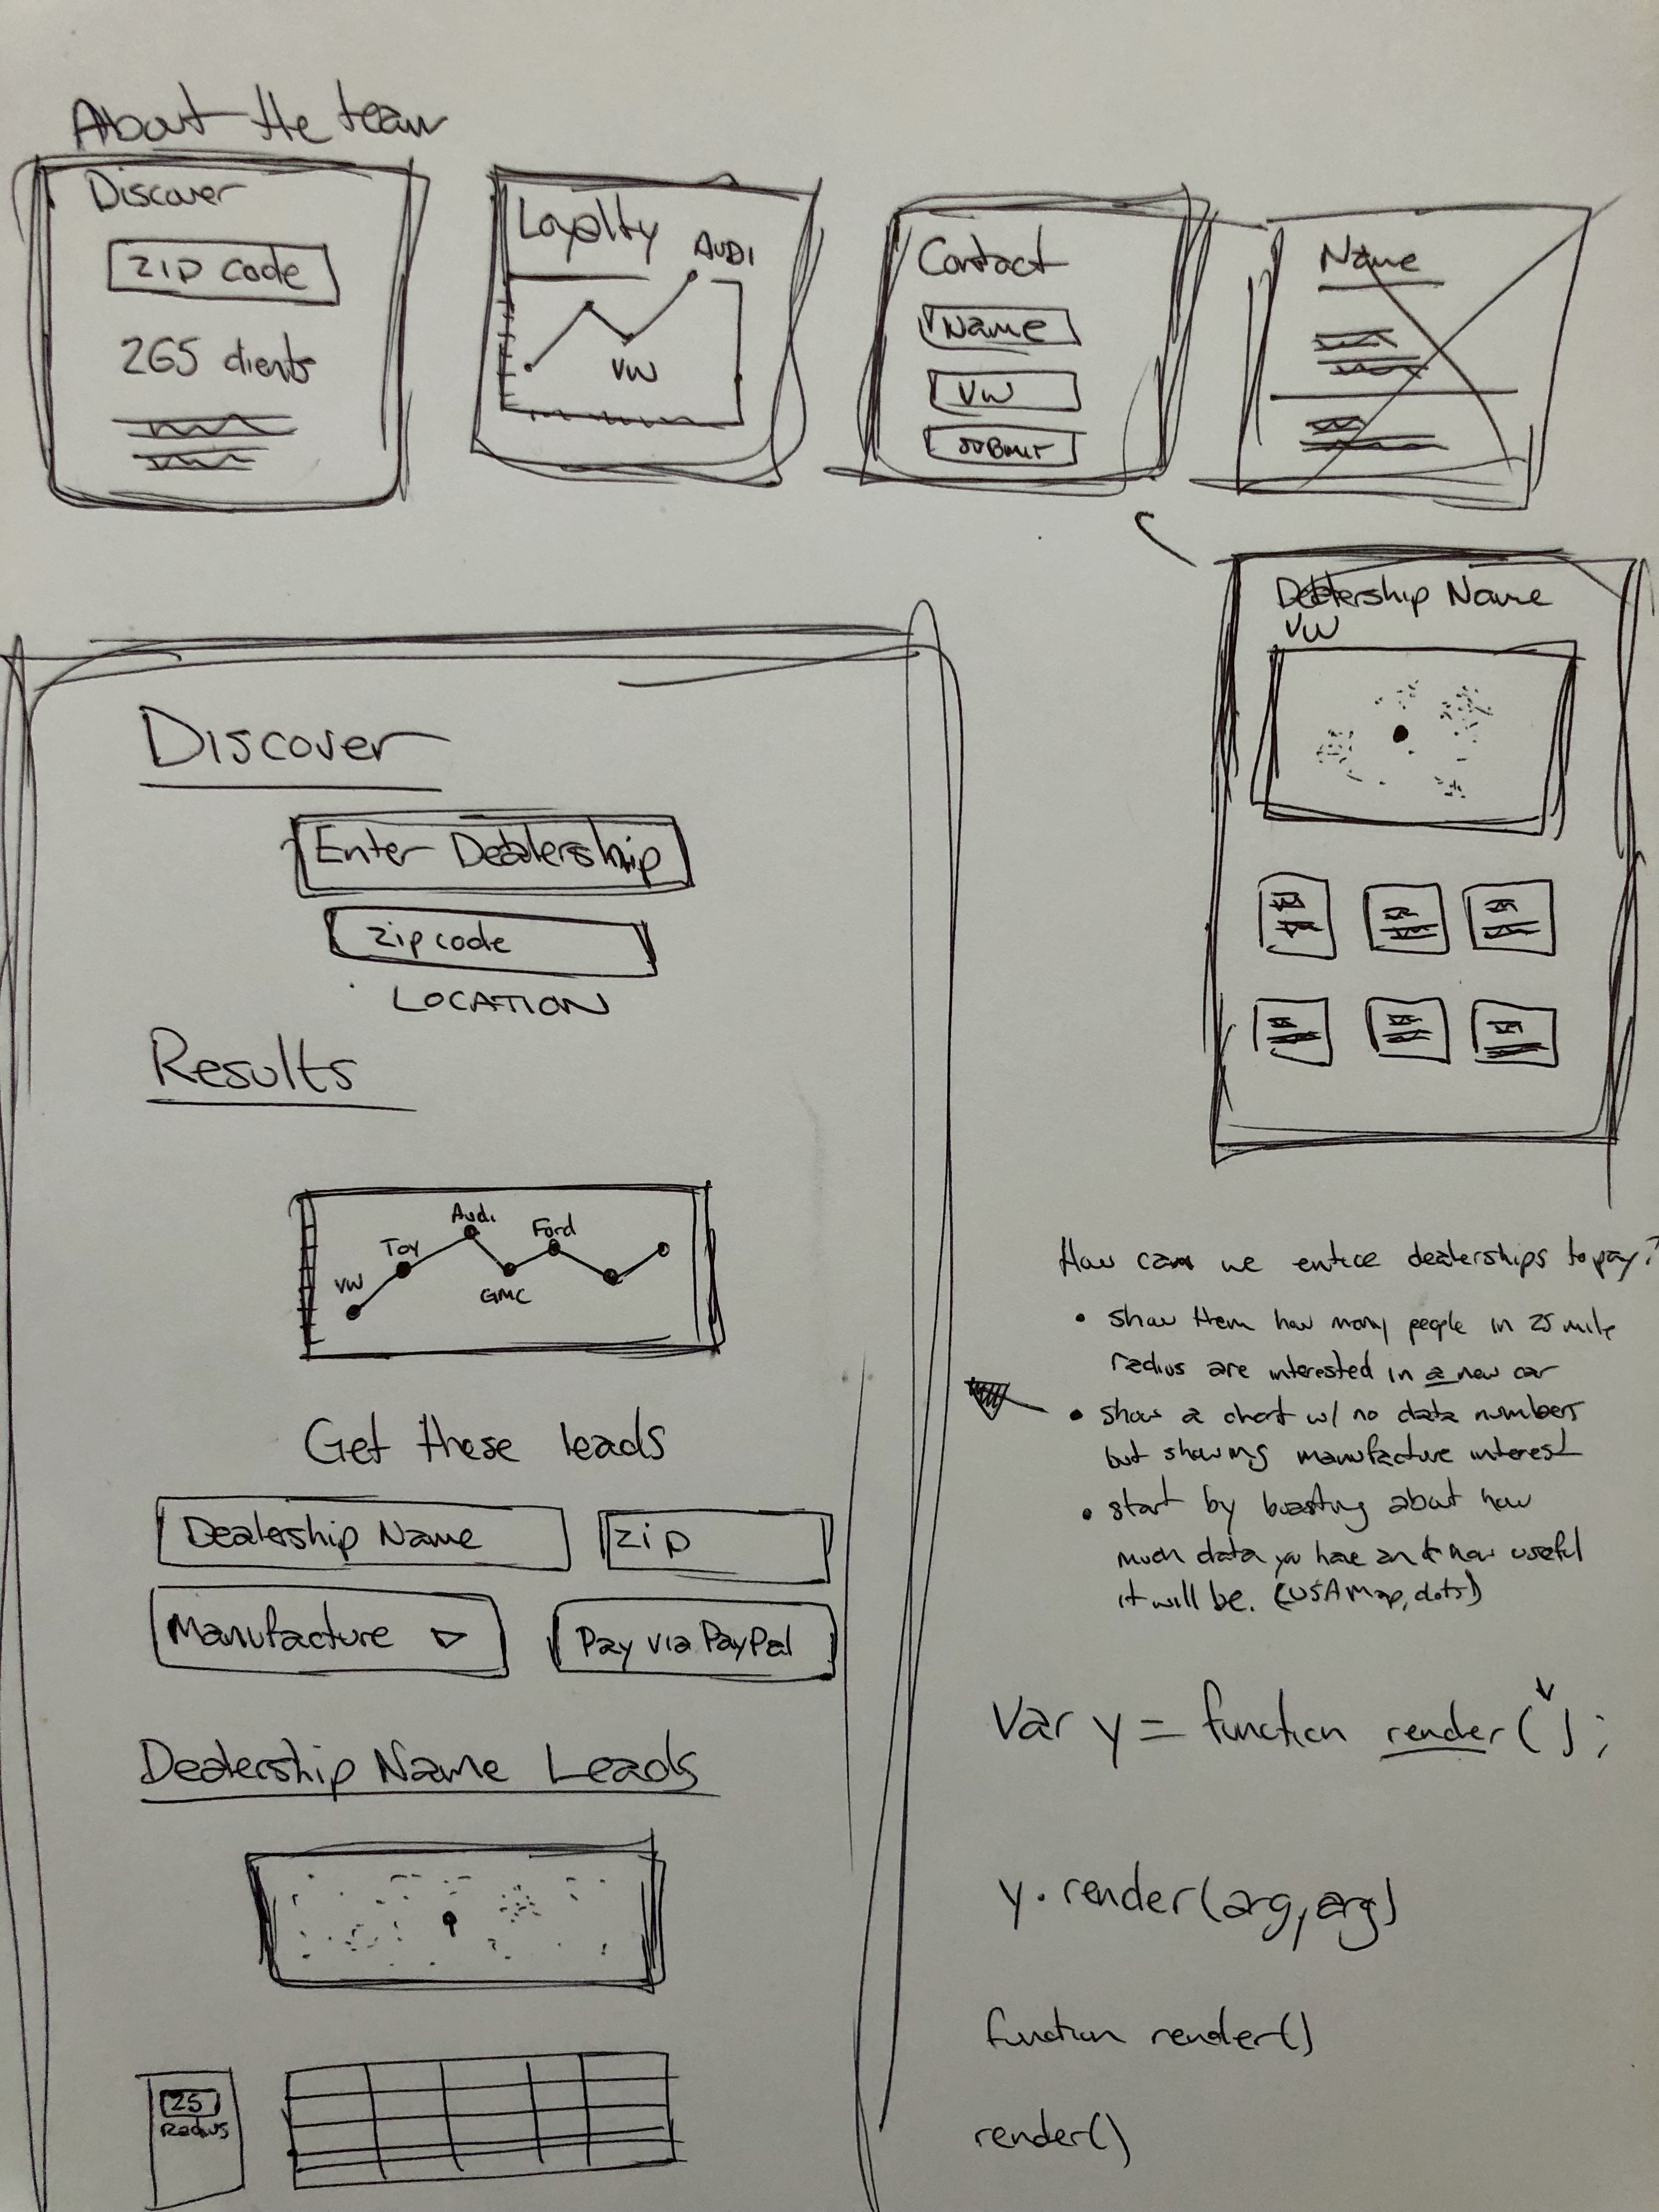 About the team
Discover
ZIP code
265 clients
Loyalty
AUDI
VW
Contact
Name
VW
SUBMIT
Name
Dealership Name
VW
Discover
Enter Dealership
zipcode
LOCATION
Results
VW
Toy
Audi
GMC
Ford
Get these leads
Dealership Name
zip
Manufacture
Pay via PayPal
Dealership Name Leads
25
Radius
How can we entice dealerships to pay?
• show them how many people in 25 mile
radius are interested in a new car
• show a chart w/ no data numbers
but showing manufacture interest
• start by boasting about how
much data you have and how useful
it will be. (USA Map, dots!)
Var y = function render( );
y.render(arg, arg)
function render()
render()